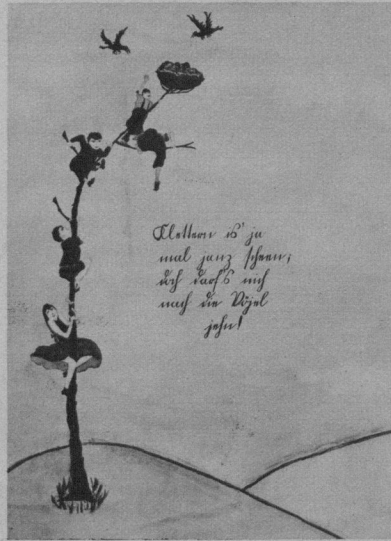 Klettern is' ja
mal janz scheen;
doch darf's nich
nach die Vöjel
jehn!